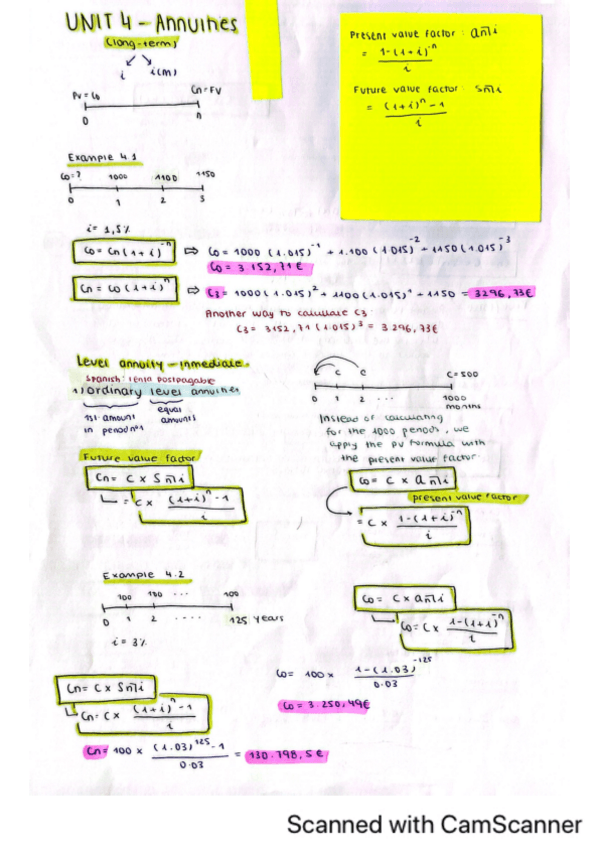 UNIT 4 - Annuities
(long-term)
i i(m)
Pv = C0 Cn = FV
0 n
Present value factor : an̅|i
= 1-(1+i)^-n / i
Future value factor Sn̅|i
= (1+i)^n - 1 / i
Example 4.1
C0=? 1000 1100 1150
0 1 2 3
i = 1,5%
C0 = Cn (1+i)^-n ⇒ C0 = 1000 (1.015)^-1 + 1.100 (1.015)^-2 + 1150 (1.015)^-3
C0 = 3.152,71€
Cn = C0 (1+i)^n ⇒ C3 = 1000 (1.015)^2 + 1100 (1.015)^1 + 1150 = 3296,73€
Another way to calculate C3
C3 = 3152,71 (1.015)^3 = 3.296,73€
Level annuity - inmediate.
Spanish: renta postpagable
1) ordinary level annuities
1st amount equal
in period nº1 amounts
C C C=500
0 1 2 ... 1000
months
Instead of calculating
for the 1000 periods, we
apply the PV formula with
the present value factor.
Future value factor
Cn = C x Sn̅|i
= C x (1+i)^n - 1 / i
C0 = C x an̅|i
present value factor
= C x 1-(1+i)^-n / i
Example 4.2
100 100 ... 100
0 1 2 .... 125 years
i = 3%
C0 = C x an̅|i
C0 = C x 1-(1+i)^-n / i
C0 = 100 x 1-(1.03)^-125 / 0.03
C0 = 3.250,49€
Cn = C x Sn̅|i
Cn = C x (1+i)^n - 1 / i
Cn = 100 x (1.03)^125 - 1 / 0.03 = 130.798,5€
Scanned with CamScanner